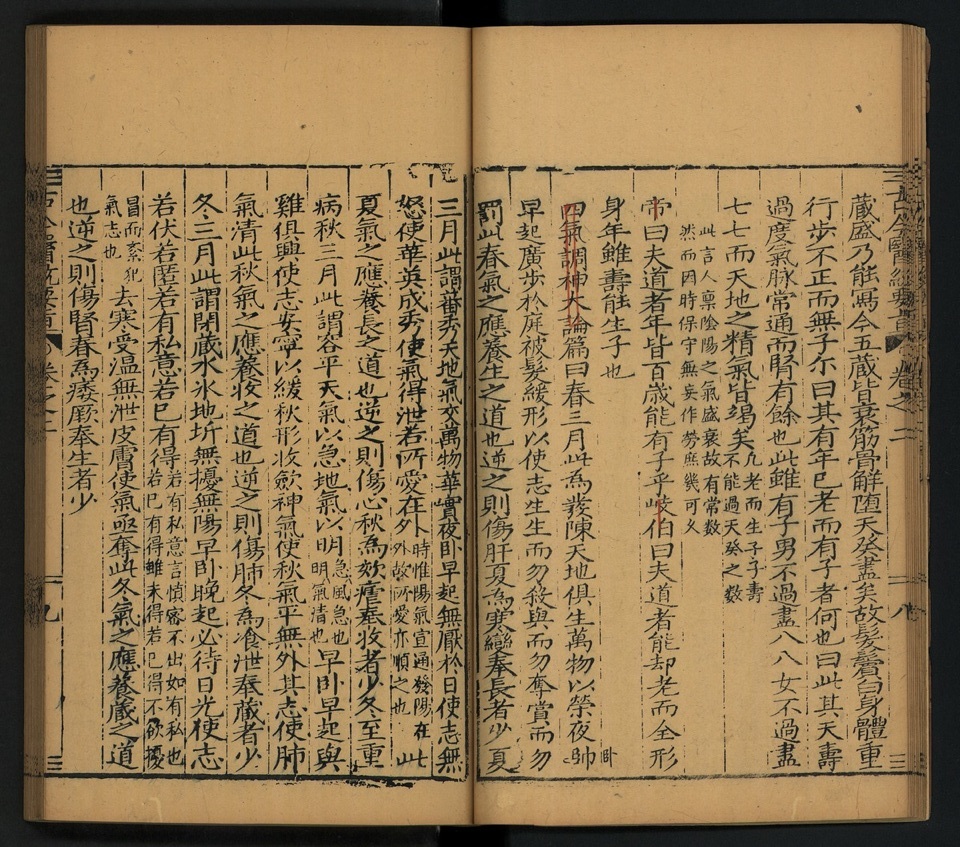 蔵盛乃能寫今五蔵皆衰筋骨解堕天癸盡矣故髮鬢白身體重
行步不正而無子尔曰其有年已老而有子者何也曰此其天壽
過度氣脉常通而腎有餘也此雖有子男不過盡八八女不過盡
七七而天地之精氣皆竭矣凡老而生子子壽不能過天癸之數
此言人禀隂陽之氣盛衰故有常数
然而因時保守無妄作勞庶幾可久
帝曰夫道者年皆百歳能有子乎岐伯曰夫道者能却老而全形
身年雖壽能生子也
四氣調神大論篇曰春三月此為發陳天地俱生萬物以榮夜卧
早起廣步於庭被髮緩形以使志生生而勿殺與而勿奪賞而勿
罰此春氣之應養生之道也逆之則傷肝夏為寒變奉長者少夏
卷之二
八
三月此謂蕃秀天地氣交萬物華實夜卧早起無厭於日使志無
怒使華英成秀使氣得泄若所愛在外時惟陽氣宣通發陽在外故所愛亦順之也此
夏氣之應養長之道也逆之則傷心秋為痎瘧奉收者少冬至重
病秋三月此謂容平天氣以急地氣以明急風急也明氣清也早卧早起與
雞俱興使志安寧以緩秋形收歛神氣使秋氣平無外其志使肺
氣清此秋氣之應養收之道也逆之則傷肺冬為飧泄奉蔵者少
冬三月此謂閉蔵水氷地坼無擾無陽早卧晚起必待日光使志
若伏若匿若有私意若已有得若有私意言慎密不出如有私也若已有得雖未得若已得不欲擾
冒而紊犯氣志也去寒受温無泄皮膚使氣亟奪此冬氣之應養蔵之道
也逆之則傷腎春為痿厥奉生者少
古今醫統要旨
卷之二
九